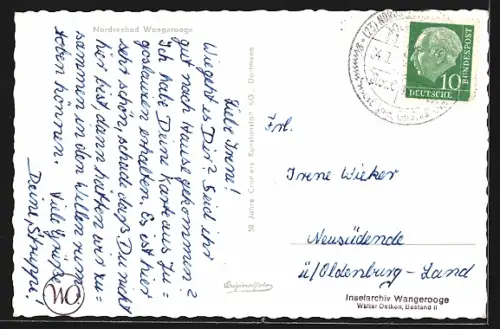 Nordseebad Wangerooge
Liebe Irene!
Wie geht es Dir? Seid ihr
gut nach Hause gekommen?
Ich habe Deine Karte aus Ju=
goslavien erhalten. Es ist hier
sehr schön, schade daß Du nicht
hier bist, dann hätten wir zu=
sammen in den Wellen rum
toben können. Viele Grüße
Deine
50 Jahre Cramers Kunstanstalt KG., Dortmund
Originalfoto
10
DEUTSCHE
BUNDESPOST
Frl.
Irene Wieker
Neusüdende
ü/Oldenburg-Land
Inselarchiv Wangerooge
Walter Oetken, Bestand II